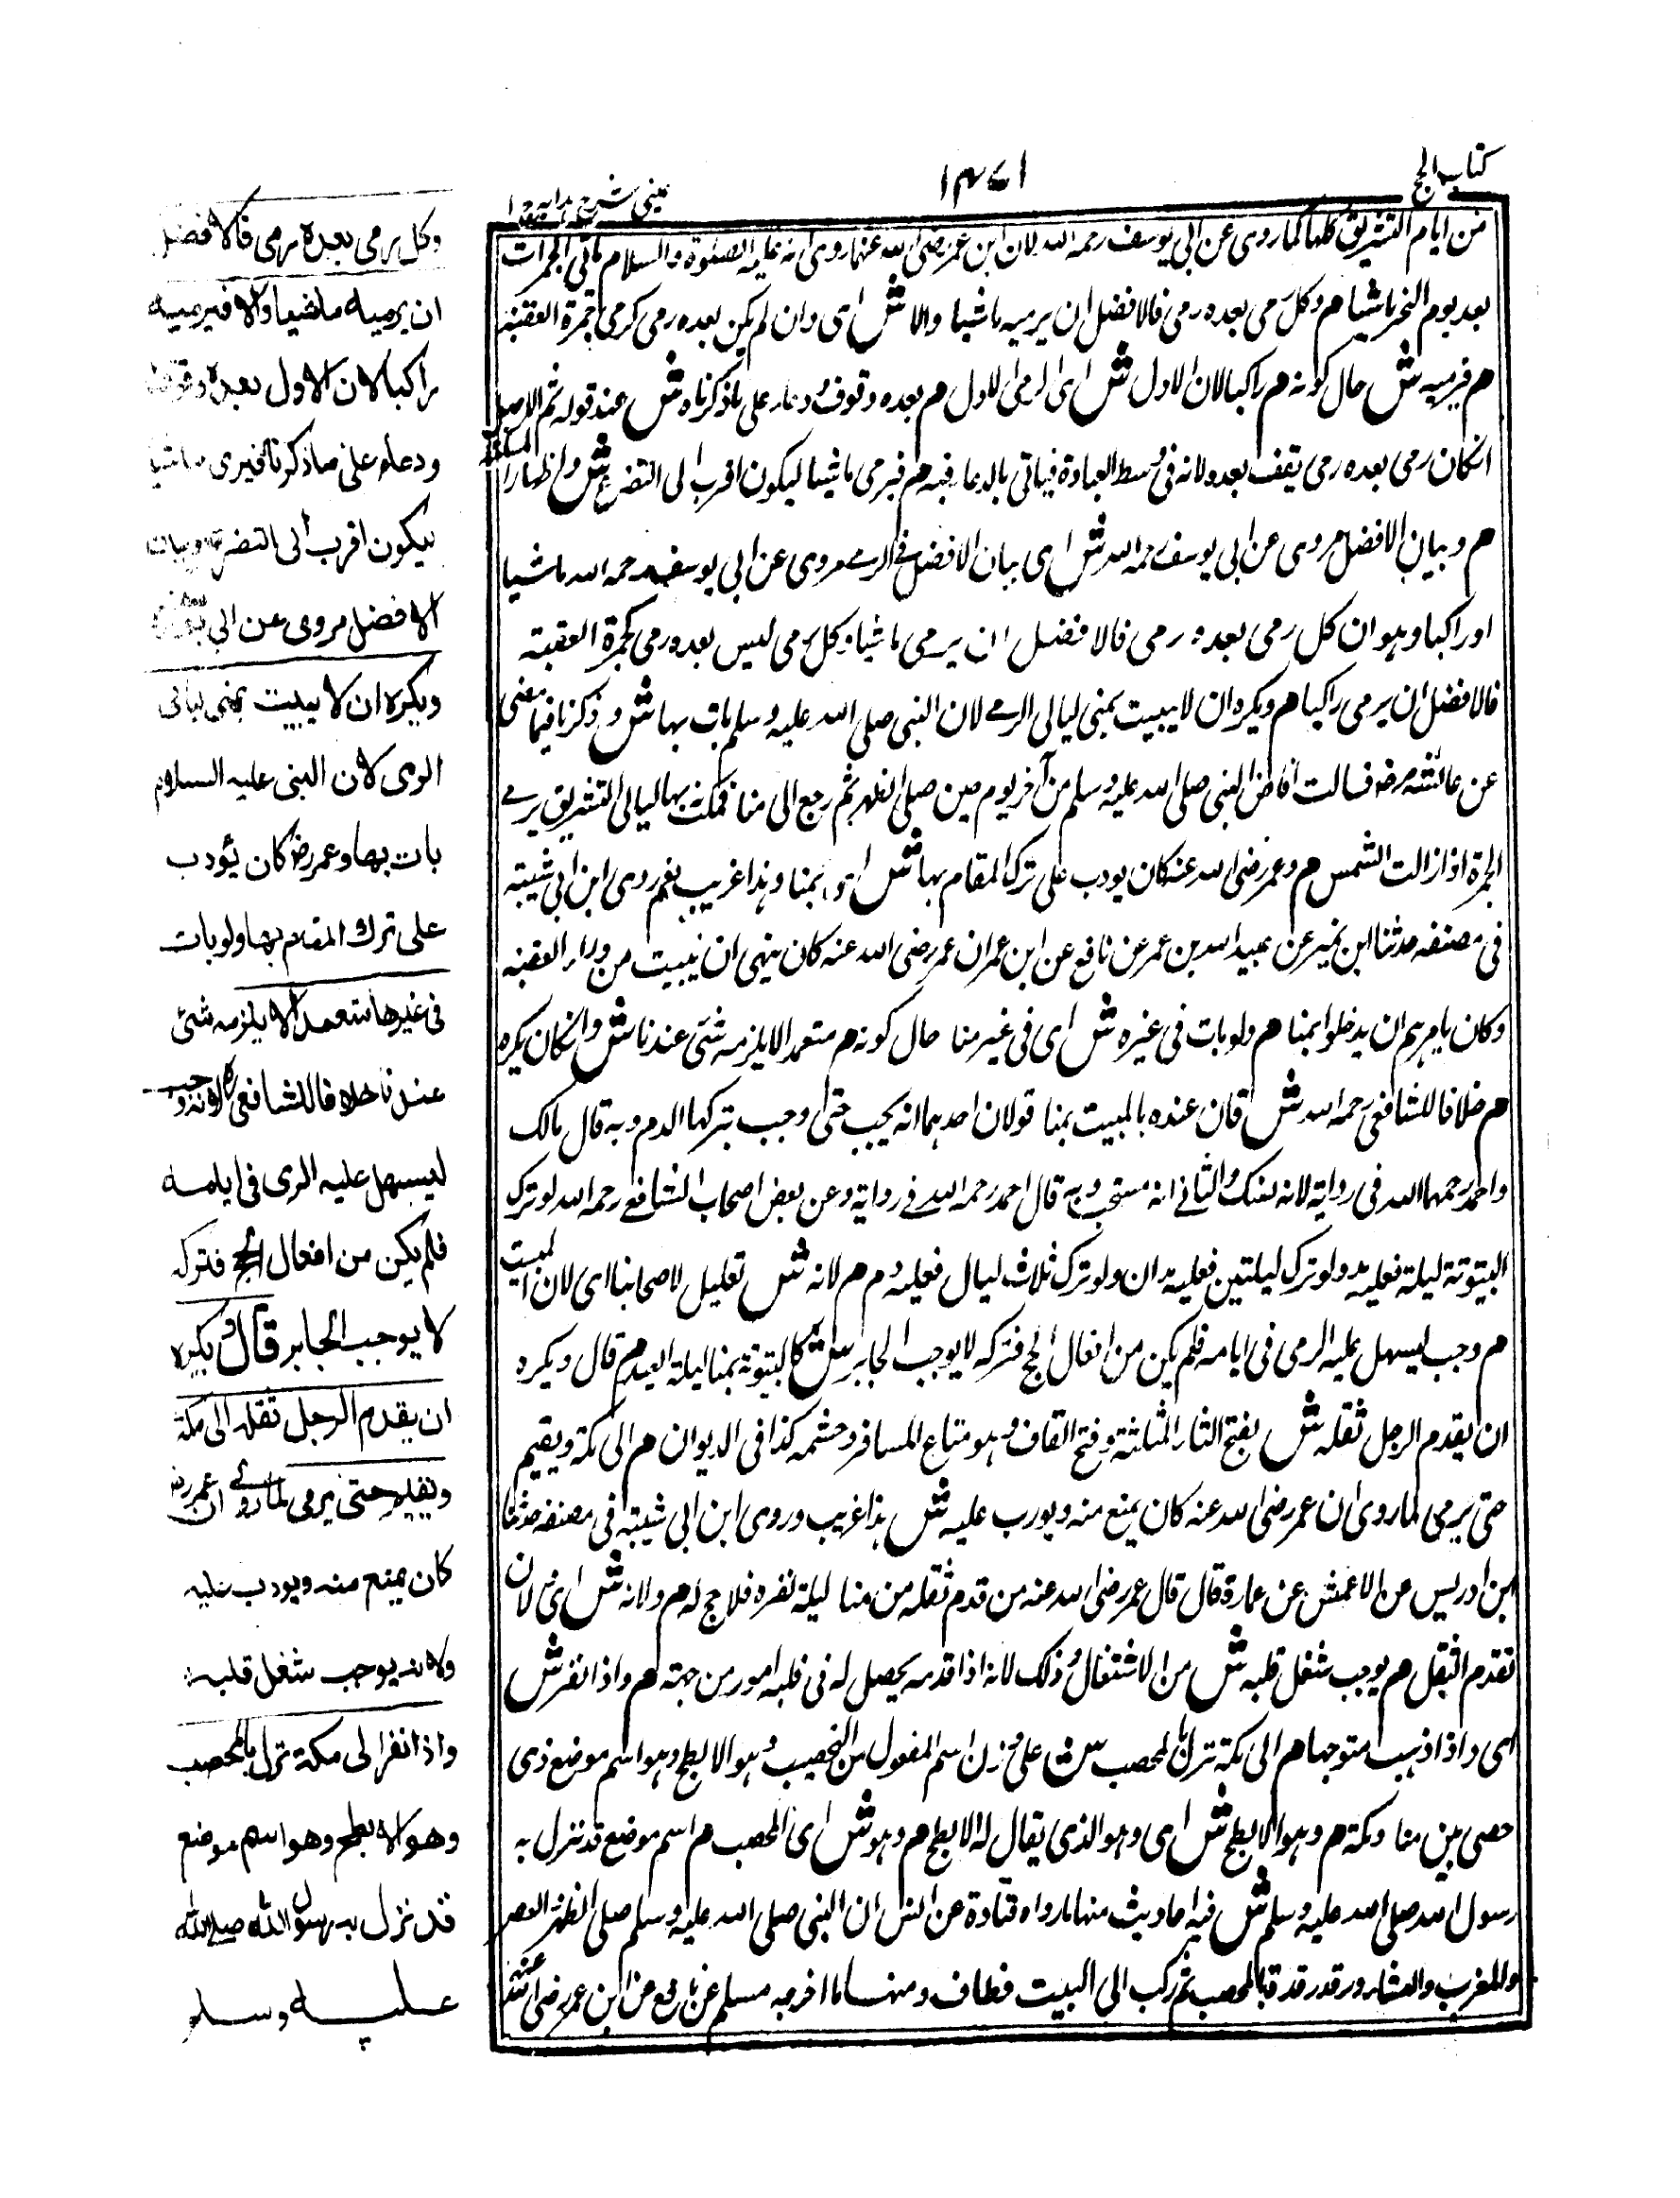 كتاب الحج
١٤٧١
عيني شرح هدايه ج ١
من ايام التشريق كلها كما روى عن ابي يوسف رحمه الله لان ابن عمر رضي الله عنهما روى انه عليه الصلوة والسلام ياتي الجمرات
بعد يوم النحر ماشيا م وكل رمى بعده رمى فالافضل ان يرميه ماشيا والا ش اى وان لم يكن بعده رمى كرمى جمرة العقبة
م فيرميه ش حال كونه م راكبا لان الاول ش اى الرمى الاول م بعده وقوف ودعاء على ما ذكرناه ش عند قوله ثم الاصل
انكان رمى بعده رمى يقف بعده لانه في وسط العبادة فياتى بالدعاء فيه م فيرمى ماشيا ليكون اقرب الى التضرع ش واظهارا
م وبيان الافضل مروى عن ابى يوسف رحمه الله ش اى بيان الافضل في الرمے مروى عن ابى يوسف رحمه الله ماشيا
اوراكبا وهوان كل رمى بعده رمى فالافضل ان يرمى ماشيا وكل رمى ليس بعده رمى كجمرة العقبة
فالافضل ان يرمى راكبا م ويكره ان لا يبيت بمنى ليالى الرمے لان النبى صلى الله عليه وسلم بات بها ش وذكرنا فيما مضى
عن عائشة رضـ قالت افاض النبى صلى الله عليه وسلم من آخر يوم حين صلى الظهر ثم رجع الى منا فمكث بها ليالى التشريق يرمے
الجمرة اذا زالت الشمس م وعمر رضى الله عنه كان يودب على ترك المقام بها ش اى بمنا وهذا غريب نعم روى ابن ابى شيبة
فى مصنفه حدثنا ابن نمير عن عبيد الله بن عمر عن نافع عن ابن عمر ان عمر رضى الله عنه كان ينهى ان يبيت من وراء العقبة
وكان يامرهم ان يدخلوا بمنا م ولو بات فى غيره ش اى فى غير منا حال كونه م متعمدا لا يلزمه شئ عندنا ش وانكان يكره
م خلافا للشافعى رحمه الله ش فان عنده بالمبيت بمنا قولان احدهما انه يجب حتى وجب بتركها الدم وبه قال مالك
واحمد رحمهما الله فى رواية لانه نسك والثانے انه مستحب وبه قال احمد رحمه الله فے رواية وعن بعض اصحاب الشافعے رحمه الله لو ترك
البيتوتة ليلة فعليه مد ولو ترك ليلتين فعليه مدان ولو ترك ثلاث ليال فعليه دم م لانه ش تعليل لاصحابنا اى لان المبيت
م وجب ليسهل عليه الرمى فى ايامه فلم يكن من افعال الحج فتركه لا يوجب الجابر ش كالبيتوتة بمنا ليلة العيد م قال ويكره
ان يقدم الرجل ثقله ش بفتح الثاء المثلثة وفتح القاف وهو متاع المسافر وحشمه كذا فى الديوان م الى مكة ويقيم
حتى يرمى لما روى ان عمر رضى الله عنه كان يمنع منه ويودب عليه ش هذا غريب وروى ابن ابى شيبة فى مصنفه حدثنا
ابن ادريس عن الاعمش عن عمارة قال قال عمر رضى الله عنه من قدم ثقله من منا ليلة نفره فلا حج له م ولانه ش اى لان
تقدم الثقل م يوجب شغل قلبه ش من الاشتغال وذلك لانه اذا قدمه يحصل له فى قلبه امور من جهته م واذا نفر ش
اى واذا ذهب متوجها م الى مكة نزل بالمحصب ش على وزن اسم المفعول من التحصيب وهو الابطح وهو اسم موضع ذى
حصى بين منا ومكة م وهو الابطح ش اى وهو الذى يقال له الابطح م وهو ش اى المحصب م اسم موضع قد نزل به
رسول الله صلى الله عليه وسلم ش فيه احاديث منها ما رواه قتادة عن انس ان النبى صلى الله عليه وسلم صلى الظهر والعصر
والمغرب والعشاء ورقد رقدة بالمحصب ثم ركب الى البيت فطاف ومنها ما اخرجه مسلم عن نافع عن ابن عمر رضى الله عنه
وكل رمى بعده رمى فالافضل
ان يرميه ماشيا والا فيرميه
راكبا لان الاول بعده وقوف
ودعاء على ما ذكرنا فيرمى ماشيا
ليكون اقرب الى التضرع وبيان
الافضل مروى عن ابي يوسف
ويكره ان لا يبيت بمنى ليالى
الرمى لان النبى عليه السلام
بات بها وعمر رضـ كان يؤدب
على ترك المقام بها ولو بات
فى غيرها متعمدا لا يلزمه شئ
عندنا خلافا للشافعى لانه وجب
ليسهل عليه الرمى فى ايامه
فلم يكن من افعال الحج فتركه
لا يوجب الجابر قال ويكره
ان يقدم الرجل ثقله الى مكة
ويقيم حتى يرمى لما روے ان عمر رضـ
كان يمنع منه ويودب عليه
ولانه يوجب شغل قلبه
واذا نفر الى مكة نزل بالمحصب
وهو الابطح وهو اسم موضع
قد نزل به رسول الله صلى الله
عليه وسلم